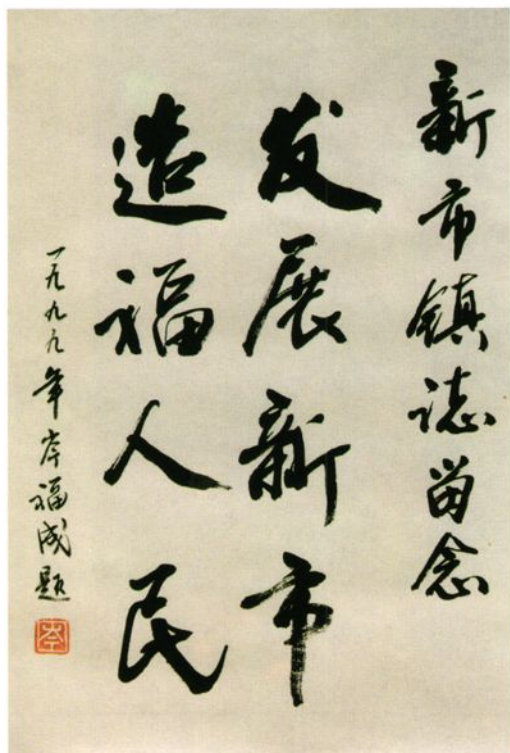 新市镇誌留念
发展新市
造福人民
一九九九年岑福成题
岑